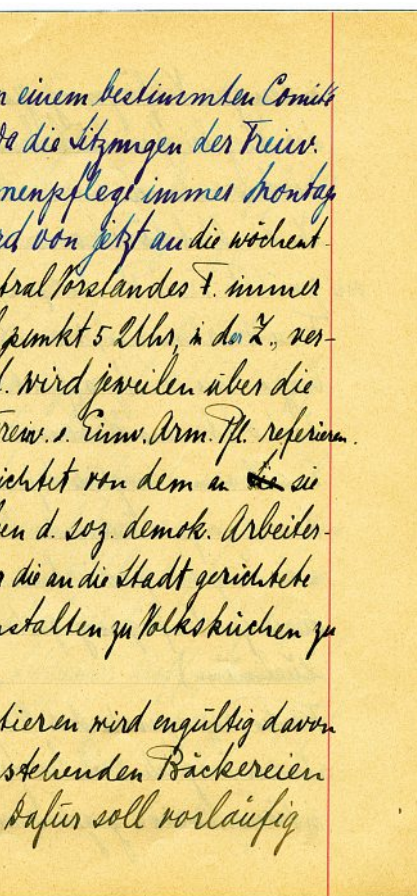 n einem bestimmten Comité
Da die Sitzungen der Freiw.
menpflege immer Montag
rd von jetzt an die wöchent-
tral Vorstandes F. immer
punkt 5 Uhr, in der Z., ver-
. wird jeweilen über die
reiw. u. Einw. Arm. Pfl. referieren.
ichtet von dem an sie
en d. soz. demok. Arbeiter-
r die an die Stadt gerichtete
nstalten zu Volksküchen zu
tieren wird engültig davon
stehenden Bäckereien
Dafür soll vorläufig